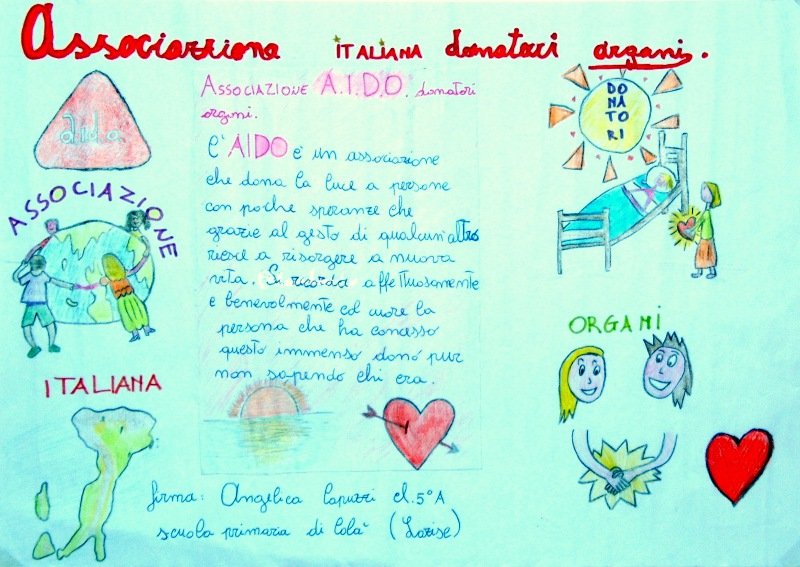 Associazziona ITALIANA donatori organi.
ASSOCIAZIONE A.I.D.O. donatori
organi.
L'AIDO e' un associazione
che dona la luce a persone
con poche speranze che
grazie al gesto di qualcun'altro
riesce a risorgere a nuova
vita. Si ricorda affettuosamente
e benevolmente col cuore la
persona che ha concesso
questo immenso dono pur
non sapendo chi era.
aido
ASSOCIAZIONE
ITALIANA
DO
NA
TO
RI
ORGANI
firma: Angelica Lapuzzi cl. 5°A
scuola primaria di Colà (Lazise)